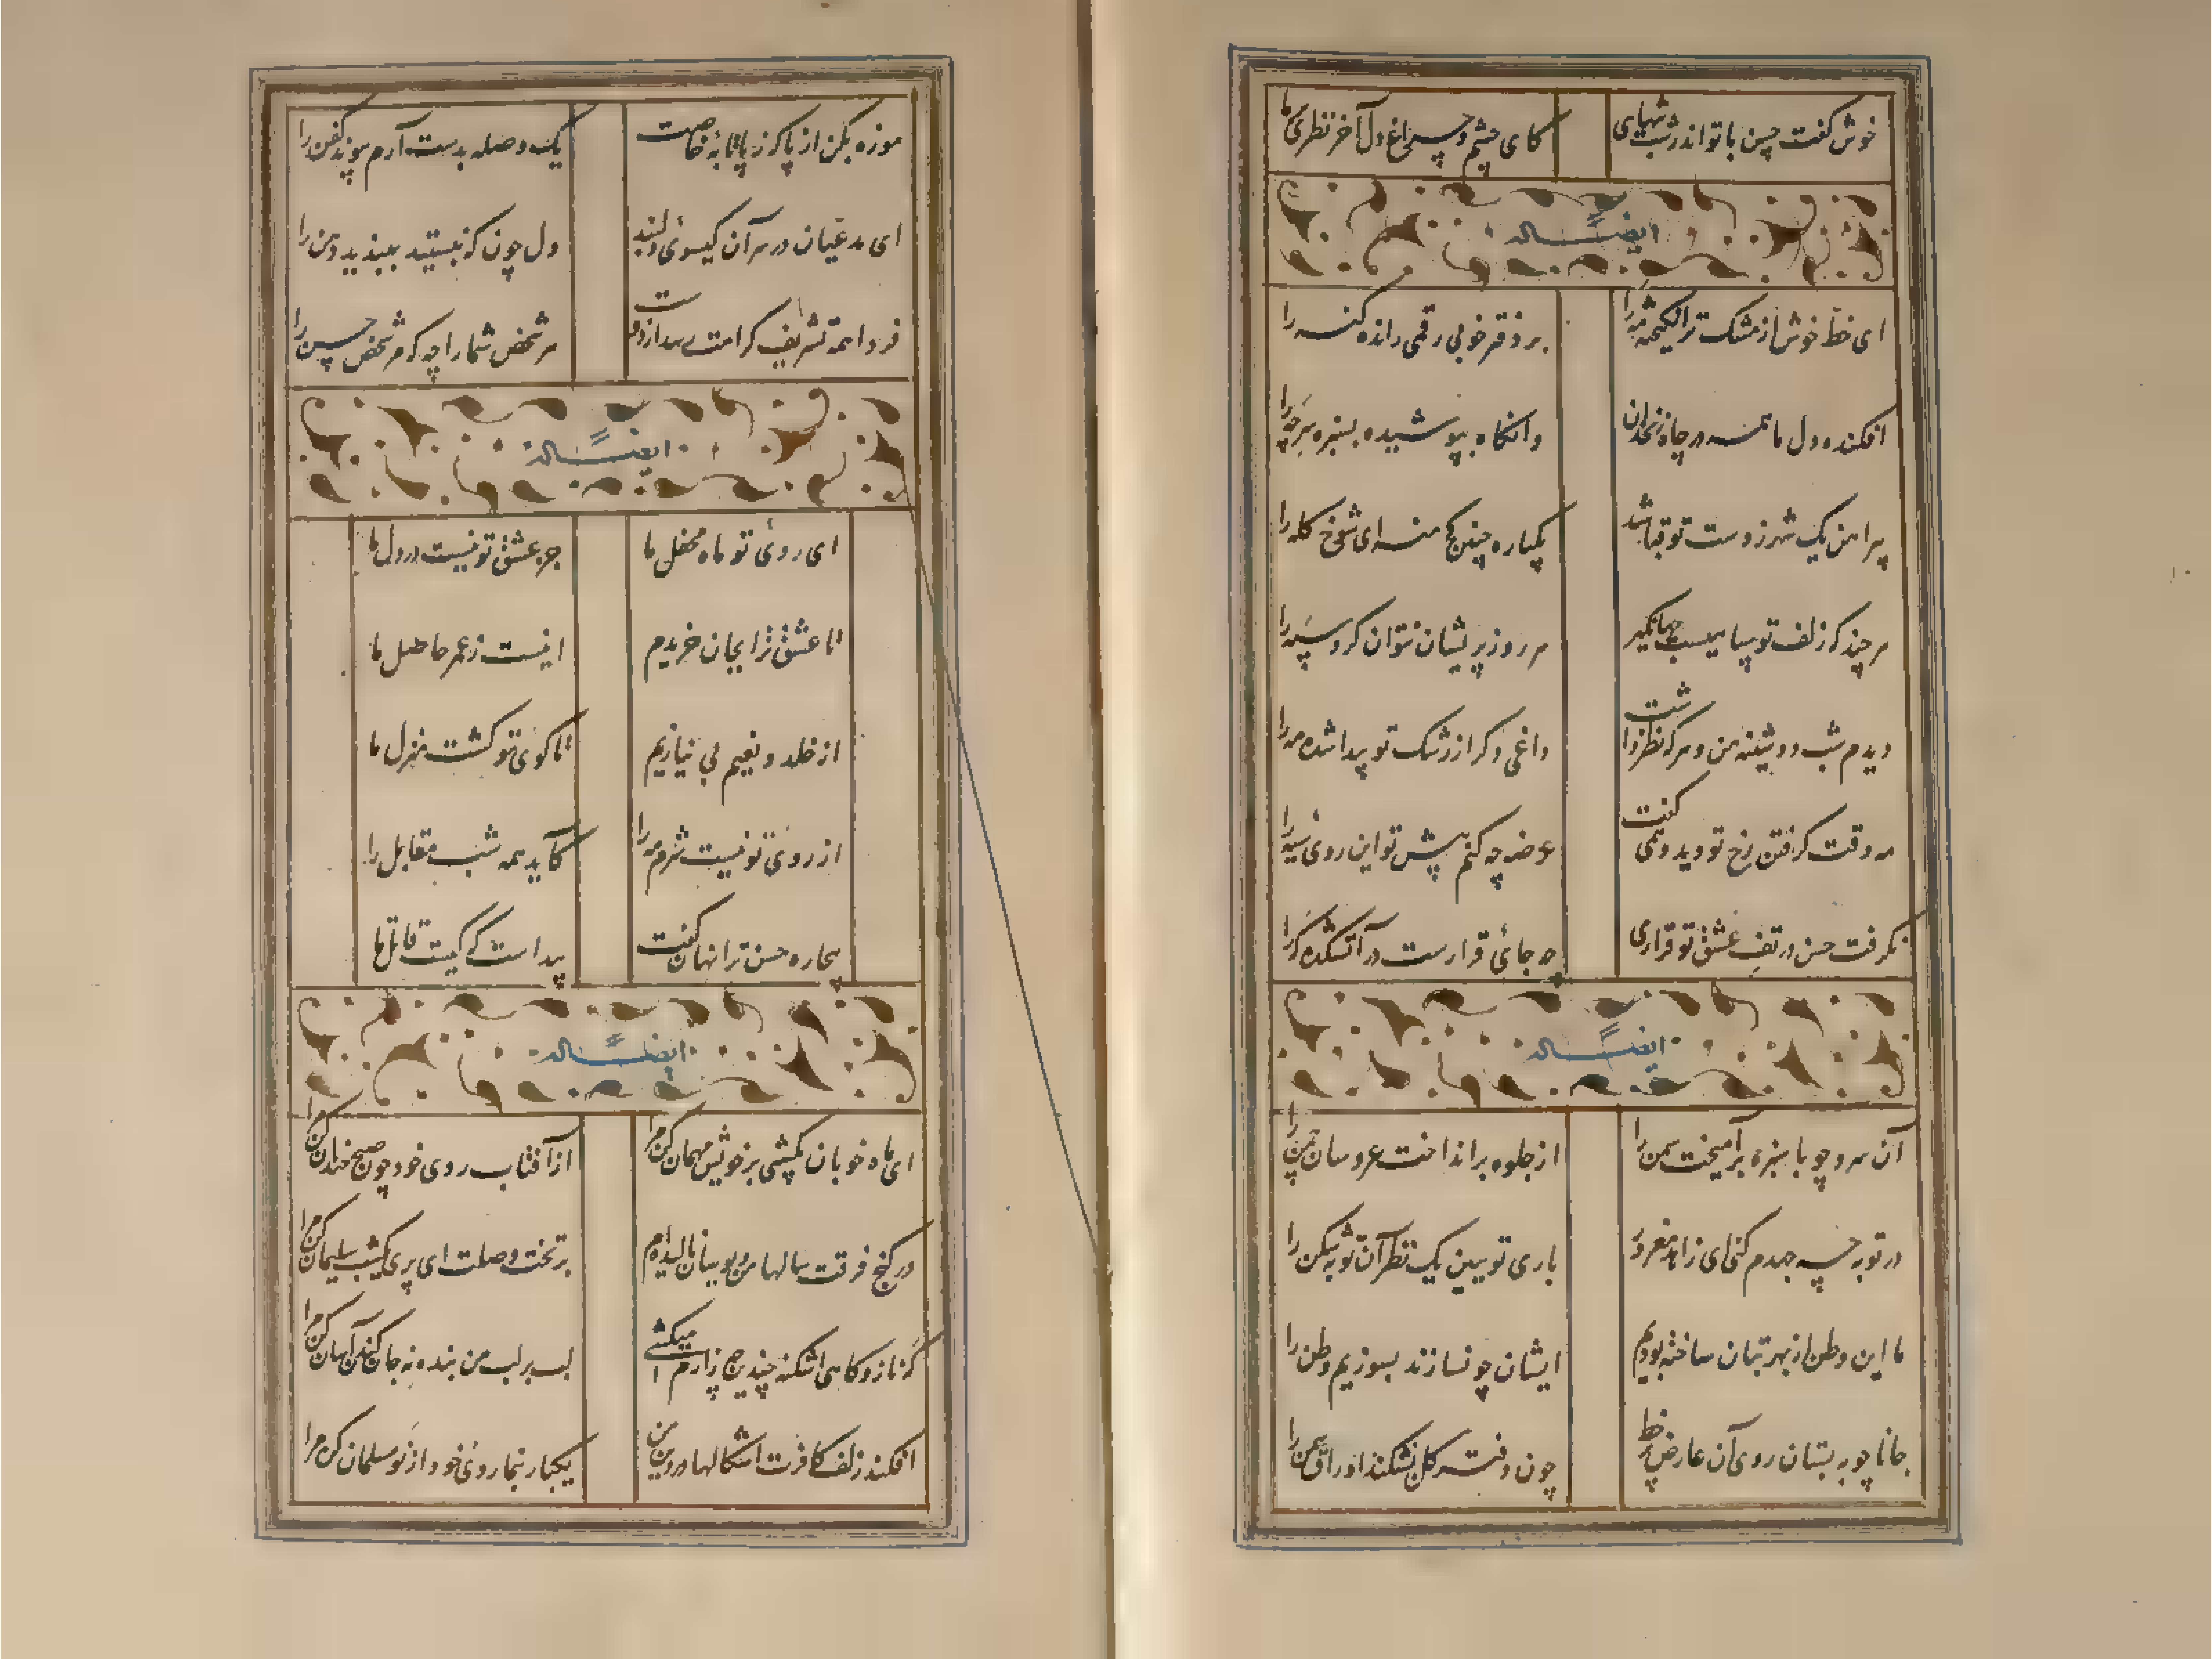 خوش گفت حسن با تو اندر شب تنهایی
کای چشم و چراغ دل آخر نظری ما
ایضاً له
ای خط خوش از مشک تر انگیخته مه را
بر دفتر خوبی رقمی رانده گنه را
افکنده دل ما همه در چاه زنخدان
وانگاه بپوشیده بسبزه سر چه را
پیراهن یک شهر ز دست تو قبا شد
یکباره چنین کج منه ای شوخ کله را
هر چند که زلف تو سپاهیست جهانگیر
هر روز پریشان نتوان کرد سپه را
دیدم شب دوشینه من و هر که نظر داشت
داغی دگر از رشک تو پیدا شده مه را
مه وقت گرفتن رخ تو دید و همی گفت
عرضه چه کنم پیش تو این روی سیه را
نگرفت حسن در تف عشق تو قراری
چه جای قرارست در آتشکده که را
ایضاً له
آن سرو چو با سبزه برآمیخت سمن را
از جلوه برانداخت عروسان چمن را
در توبه چه جهدم کنی ای زاهد مغرور
باری تو ببین یک نظر آن توبه شکن را
ما این وطن از بهر بتان ساخته بودیم
ایشان چو نسازند بسوزیم وطن را
جانا چو به بستان روی آن عارض پر خط
چون دفتر گل بشکند اوراق سمن را
موزه بکن از پا که ز پاتابه خاصت
یک وصله بدست آرم پیوند کفن را
ای مدعیان در سر آن گیسوی دلبند
دل چون که نبستید ببندید دهن را
فردا همه تشریف کرامت رسد از دوست
هر شخص شما را چه که مر شخص حسن را
ایضاً له
ای روی تو ماه محفل ما
جز عشق تو نیست در دل ما
تا عشق ترا بجان خریدم
اینست ز عمر حاصل ما
از خلد و نعیم بی نیازیم
تا کوی تو گشت منزل ما
از روی تو نیست شرم مه را
کآید همه شب مقابل را
بیچاره حسن ترا نهان گفت
پیداست که کیست قاتل ما
ایضاً له
ای ماه خوبان یکشبی بر خویش مهمان کن مرا
از آفتاب روی خود چون صبح خندان کن مرا
در کنج فرقت سالها من دیو بسان نالیده‌ام
بر تخت وصلت ای پری یکشب سلیمان کن مرا
لب بر لب من بنده نه جان کندن آسان کن مرا
افکند زلف کافرت اشکالها در دین من
یکبار بنما روی خود از نو مسلمان کن مرا